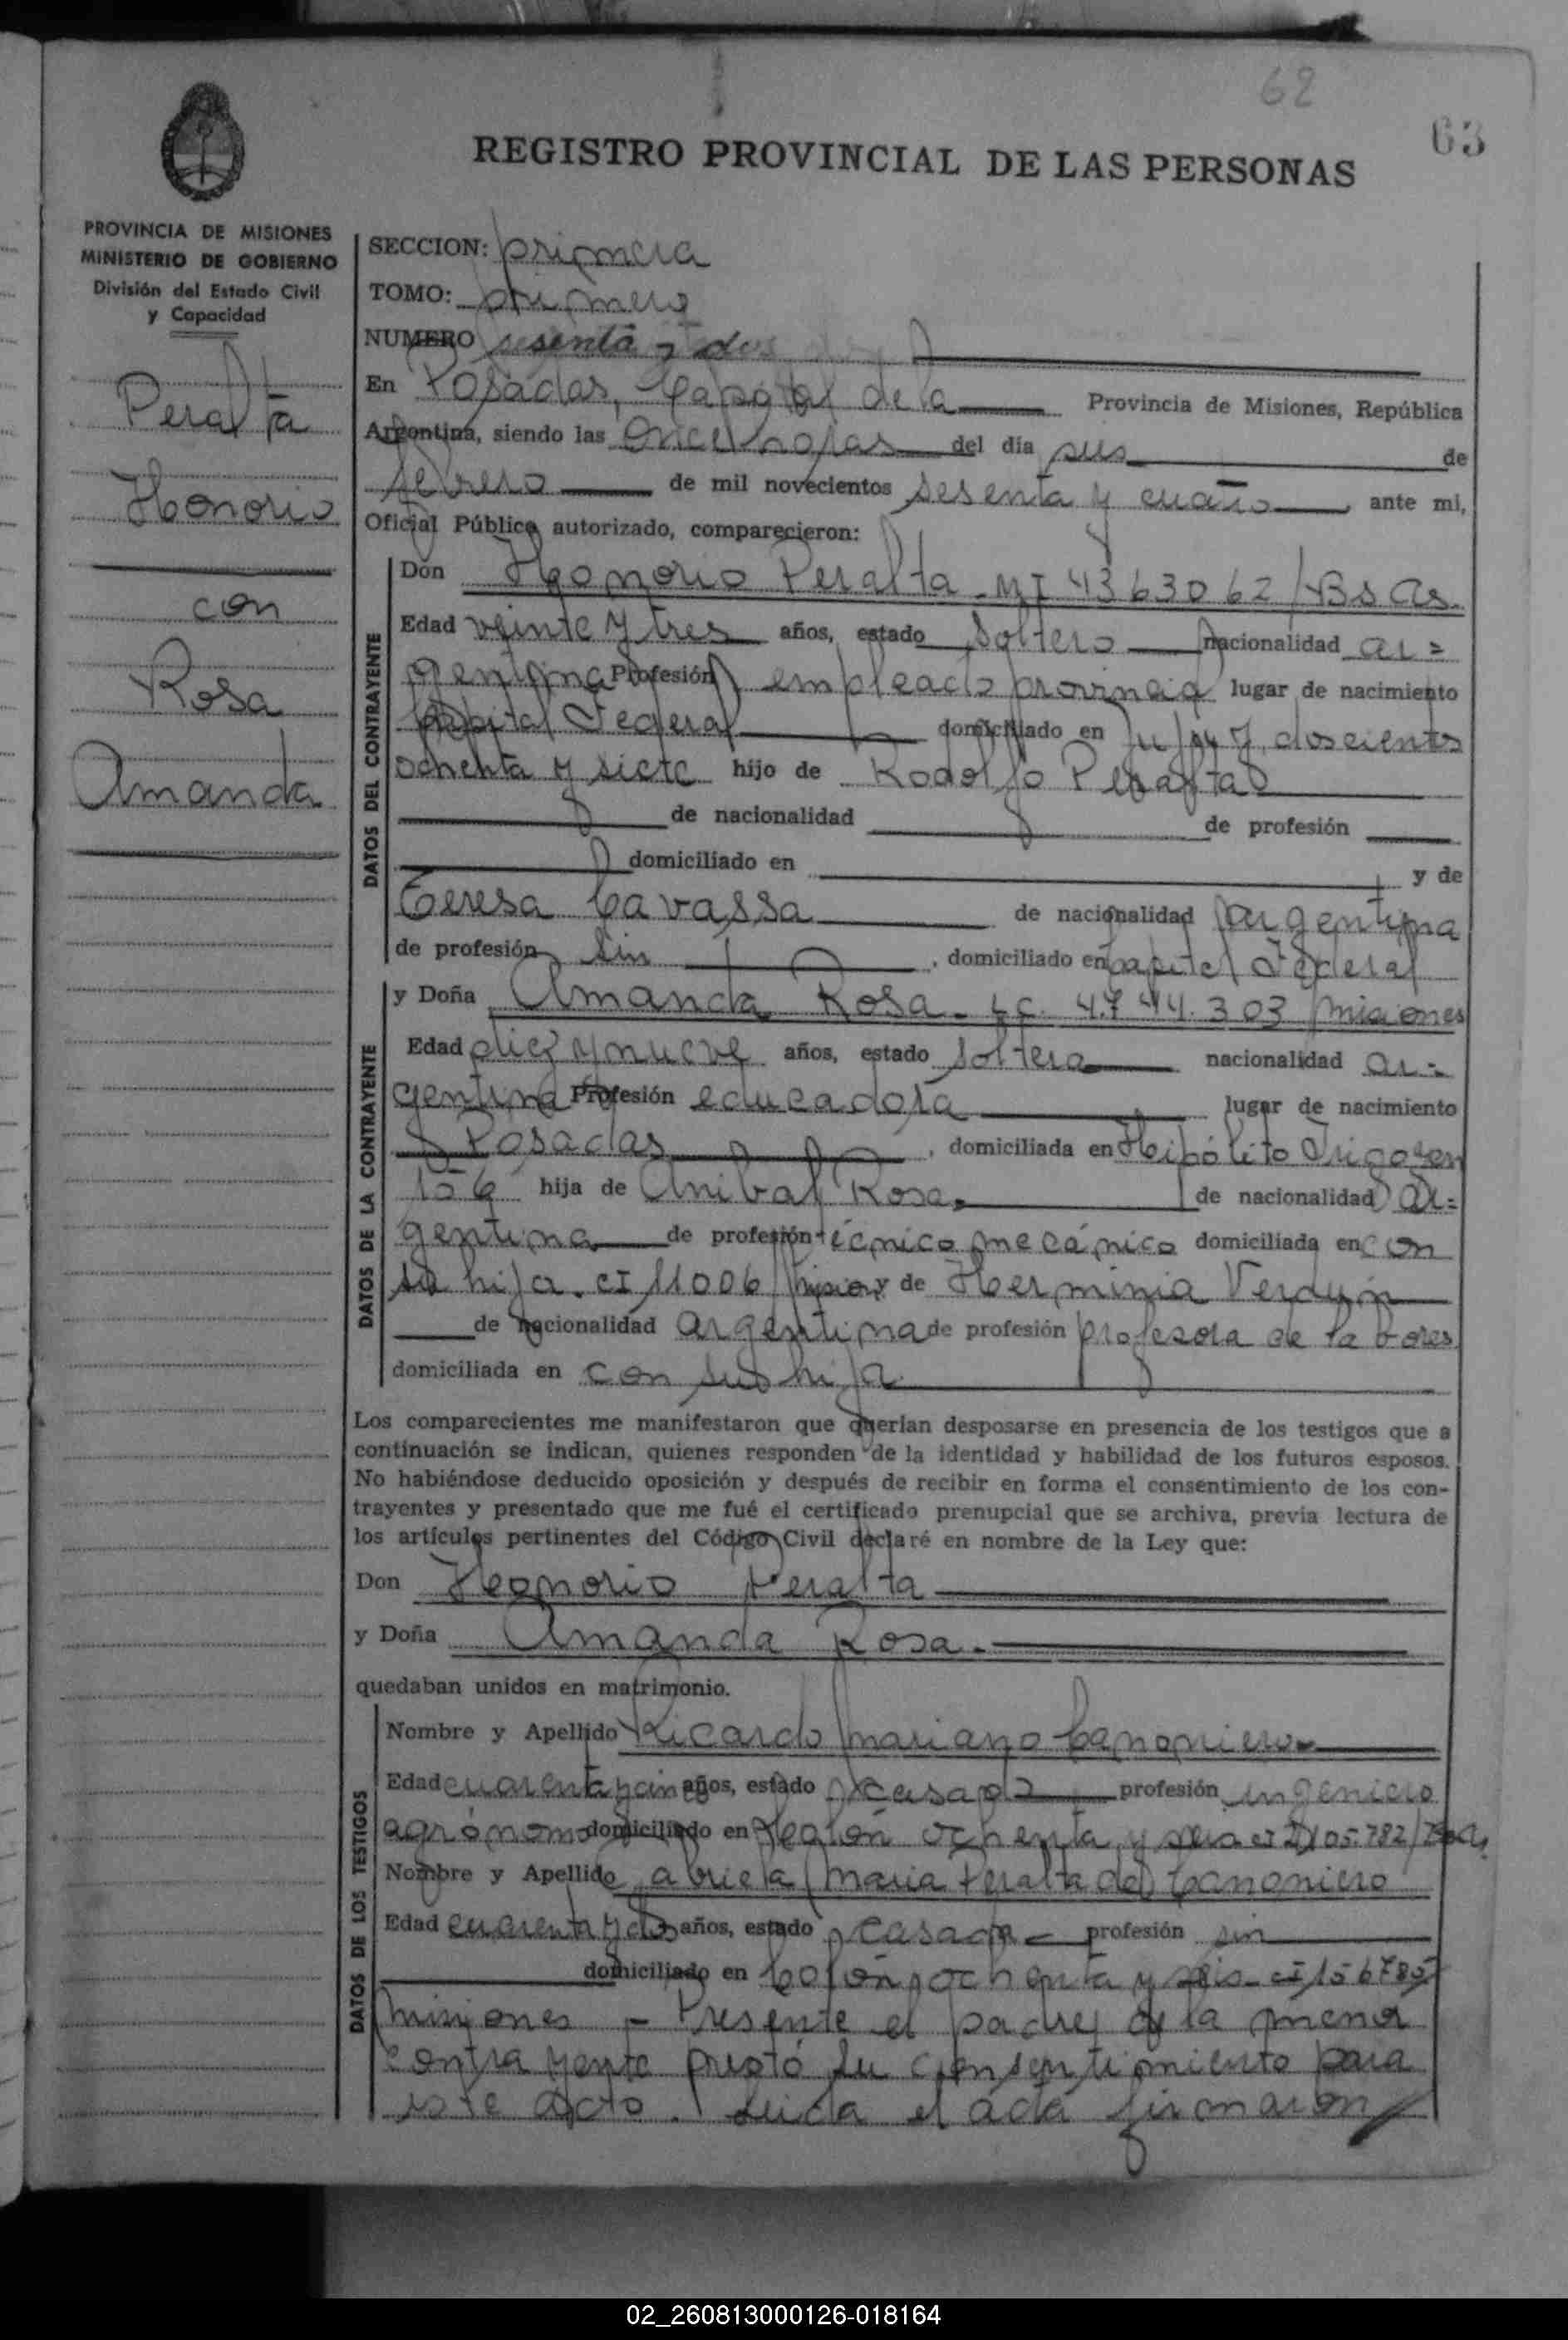 62
63
REGISTRO PROVINCIAL DE LAS PERSONAS
PROVINCIA DE MISIONES
MINISTERIO DE GOBIERNO
División del Estado Civil
y Capacidad
Peralta
Honorio
con
Rosa
Amanda
SECCION: primera
TOMO: primero
NUMERO sesenta y dos
En Posadas, Capital de la Provincia de Misiones, República
Argentina, siendo las once horas del día seis de
febrero de mil novecientos sesenta y cuatro, ante mi,
Oficial Público autorizado, comparecieron:
DATOS DEL CONTRAYENTE
Don Honorio Peralta - MI 4363062/Bs As.
Edad veinte y tres años, estado soltero nacionalidad ar=
gentina Profesión empleado provincial lugar de nacimiento
Capital Federal domiciliado en Jujuy doscientos
ochenta y siete hijo de Rodolfo Peralta
de nacionalidad de profesión
domiciliado en y de
Teresa Cavassa de nacionalidad argentina
de profesión sin, domiciliado en Capital Federal
DATOS DE LA CONTRAYENTE
y Doña Amanda Rosa - LC. 4.744.303 Misiones
Edad diez y nueve años, estado soltera nacionalidad ar=
gentina Profesión educadora lugar de nacimiento
Posadas, domiciliada en Hipólito Irigoyen
156 hija de Anibal Rosa de nacionalidad ar=
gentina de profesión técnico mecánico domiciliada en con
su hija. CI 11006 y de Herminia Verdún
de nacionalidad argentina de profesión profesora de labores
domiciliada en con su hija
Los comparecientes me manifestaron que querían desposarse en presencia de los testigos que a
continuación se indican, quienes responden de la identidad y habilidad de los futuros esposos.
No habiéndose deducido oposición y después de recibir en forma el consentimiento de los con-
trayentes y presentado que me fué el certificado prenupcial que se archiva, previa lectura de
los artículos pertinentes del Código Civil declaré en nombre de la Ley que:
Don Honorio Peralta
y Doña Amanda Rosa.
quedaban unidos en matrimonio.
DATOS DE LOS TESTIGOS
Nombre y Apellido Ricardo Mariano Canoniero
Edad cuarenta y cinco años, estado casado profesión ingeniero
agrónomo domiciliado en Colón ochenta y seis
Nombre y Apellido Gabriela Maria Peralta de Canoniero
Edad cuarenta y dos años, estado casada profesión sin
domiciliado en Colón ochenta y seis - CI 156785
Misiones - Presente el padre de la menor
contrayente prestó su consentimiento para
este acto. Leida el acta firmaron
02_260813000126-018164